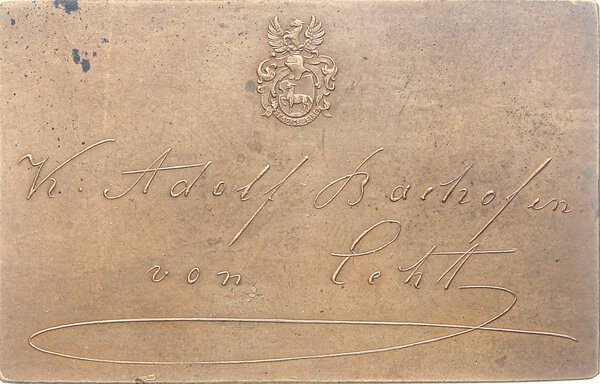 K. Adolf Bachofen
von Echt